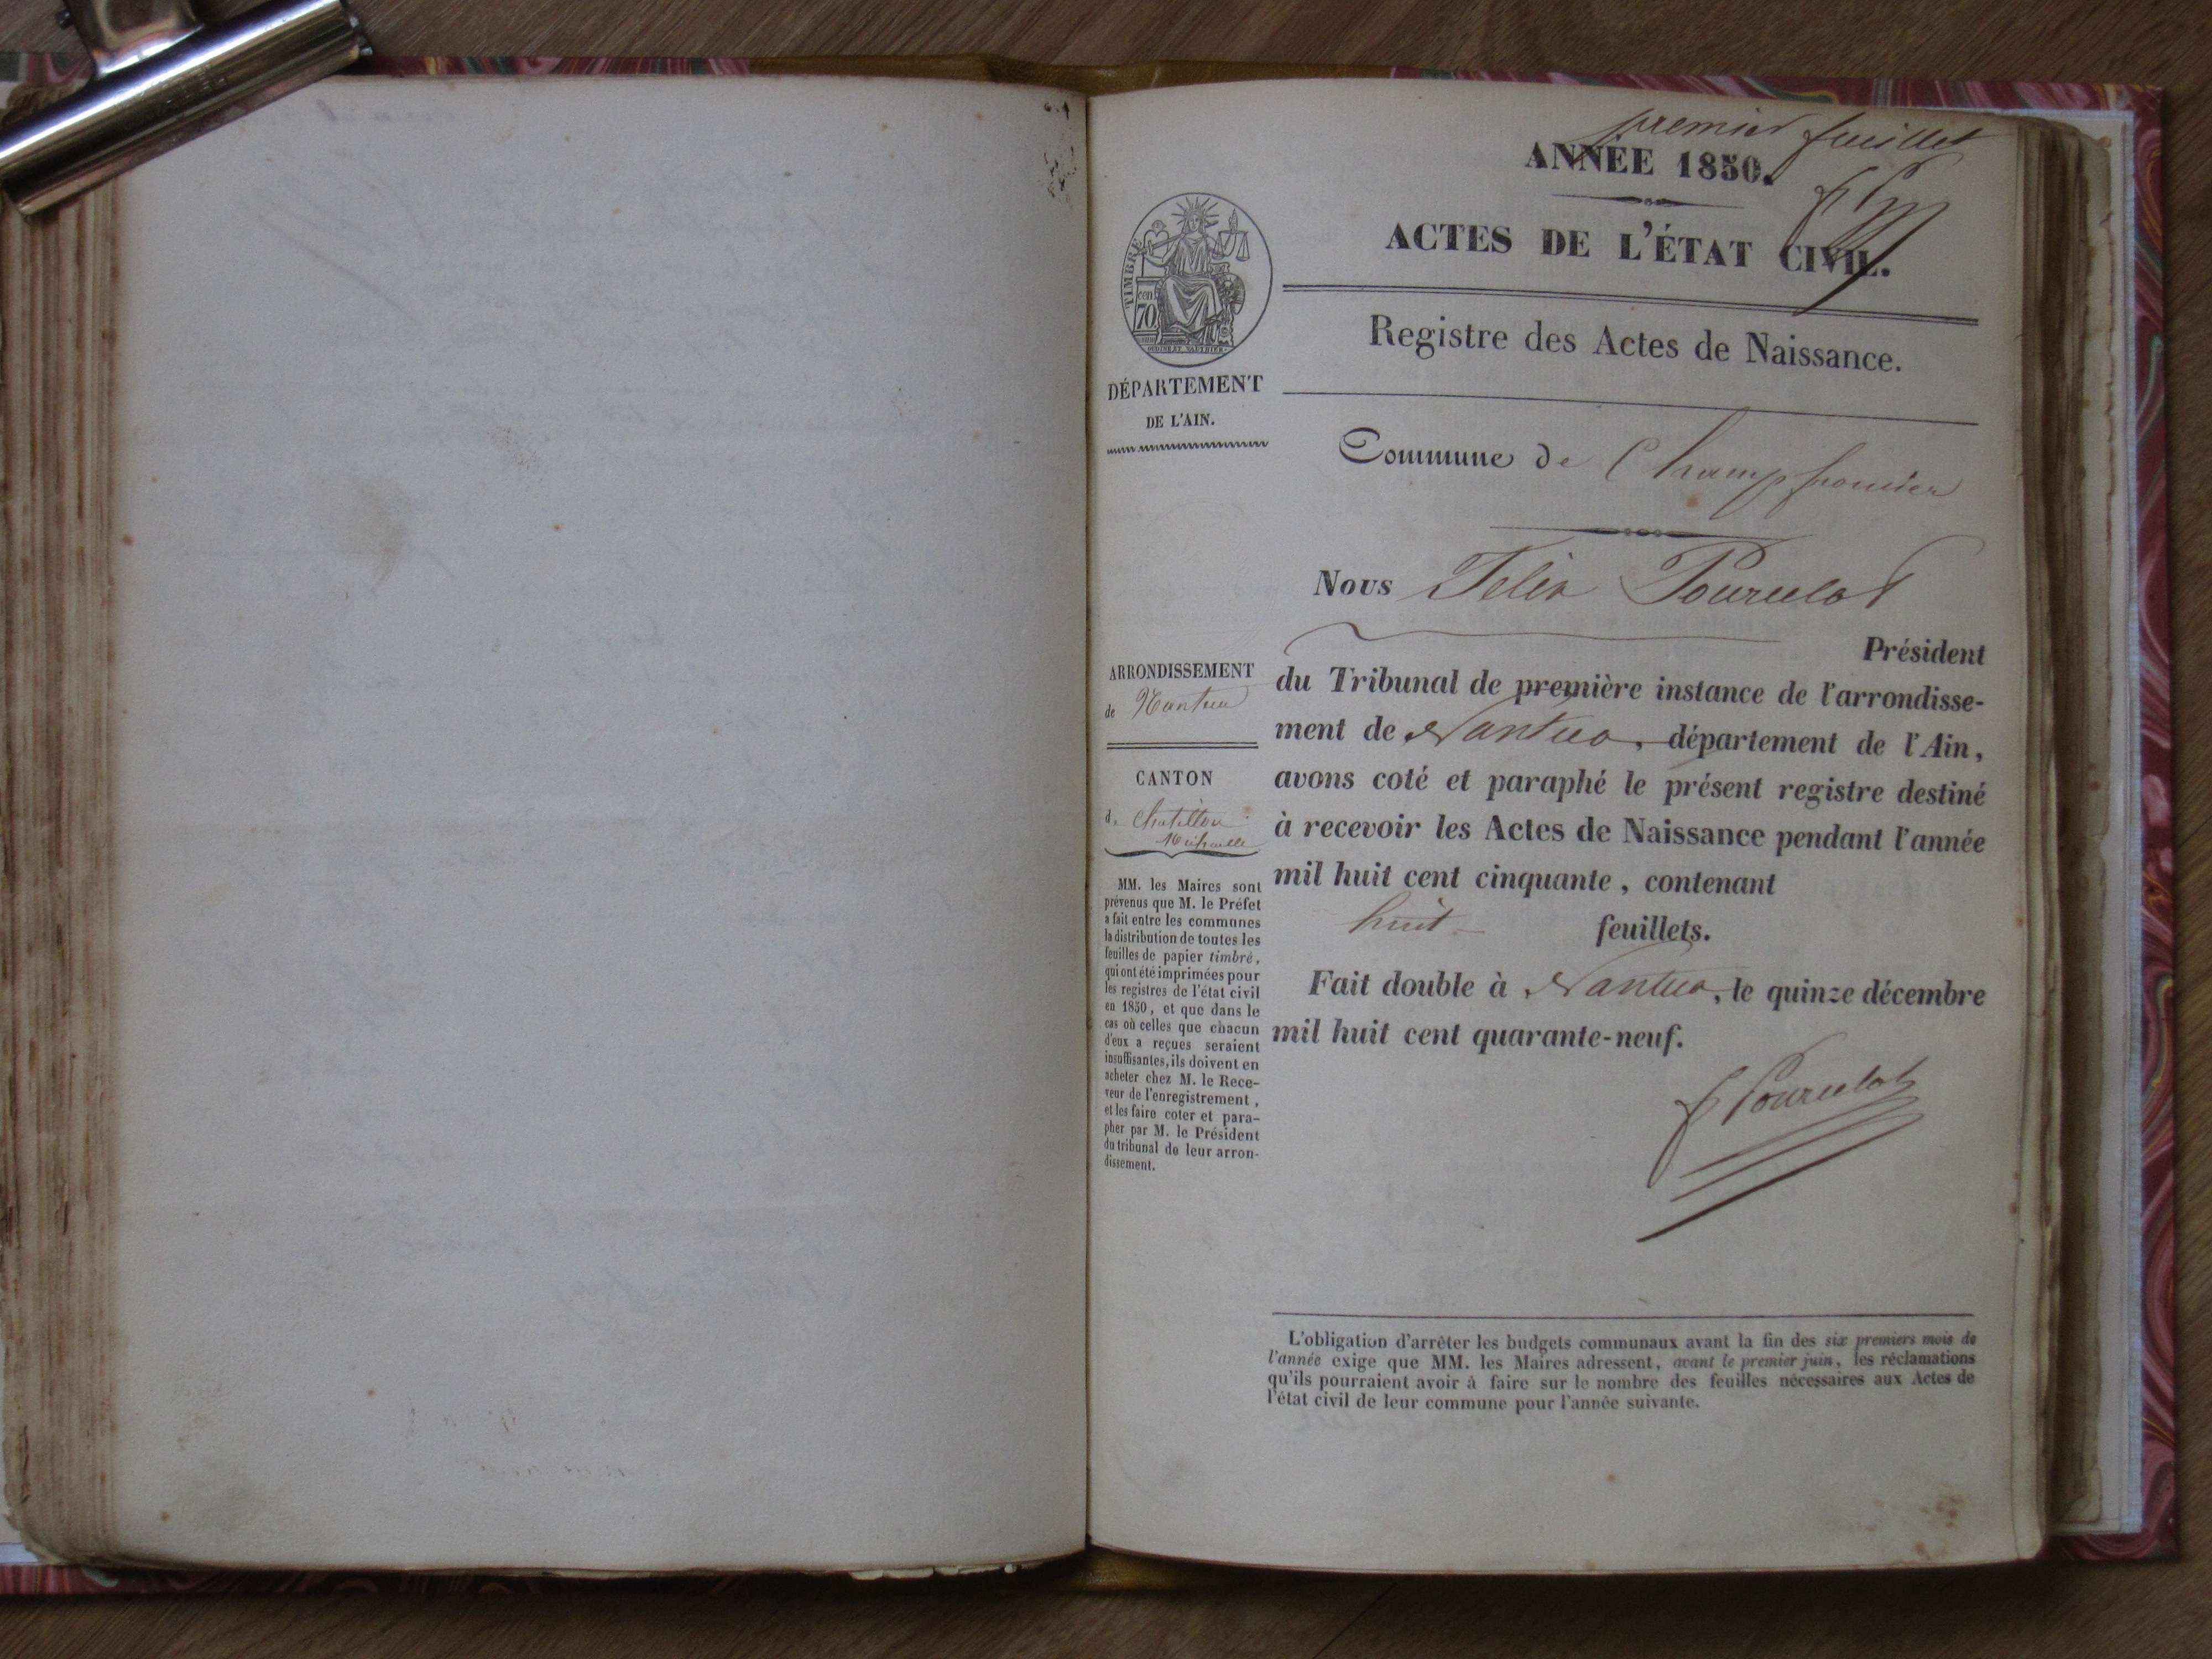 premier feuillet
ANNÉE 1850.
ACTES DE L'ÉTAT CIVIL.
TIMBRE
cen
70
Registre des Actes de Naissance.
DÉPARTEMENT
DE L'AIN.
Commune de Champfromier
Nous Felix Pourcelot
Président
du Tribunal de première instance de l'arrondisse-
ment de Nantua, département de l'Ain,
avons coté et paraphé le présent registre destiné
à recevoir les Actes de Naissance pendant l'année
mil huit cent cinquante, contenant
huit feuillets.
Fait double à Nantua, le quinze décembre
mil huit cent quarante-neuf.
f Pourcelot
ARRONDISSEMENT
de Nantua
CANTON
de Chatillon
Michaille
MM. les Maires sont
prévenus que M. le Préfet
a fait entre les communes
la distribution de toutes les
feuilles de papier timbré,
qui ont été imprimées pour
les registres de l'état civil
en 1850, et que dans le
cas où celles que chacun
d'eux a reçues seraient
insuffisantes, ils doivent en
acheter chez M. le Rece-
veur de l'enregistrement,
et les faire coter et para-
pher par M. le Président
du tribunal de leur arron-
dissement.
L'obligation d'arrêter les budgets communaux avant la fin des six premiers mois de
l'année exige que MM. les Maires adressent, avant le premier juin, les réclamations
qu'ils pourraient avoir à faire sur le nombre des feuilles nécessaires aux Actes de
l'état civil de leur commune pour l'année suivante.